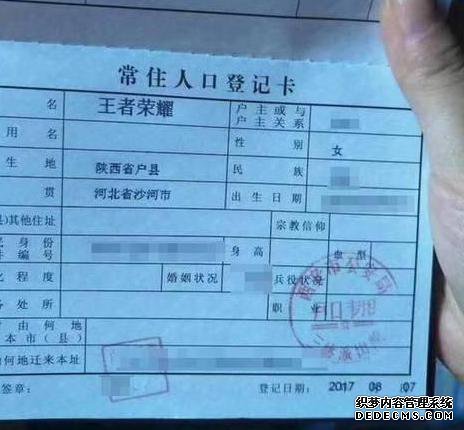 常住人口登记卡
名 王者荣耀 户主或与户主关系
用名 性别 女
生地 陕西省户县 民族
贯 河北省沙河市 出生日期
)其他住址 宗教信仰
身份
件编号 身高 血型
化程度 婚姻状况 兵役状况
务处所 职业
由何地
本市(县)
何地迁来本址
签章: 登记日期: 2017 08 07
织梦内容管理系统
DEDECMS.COM